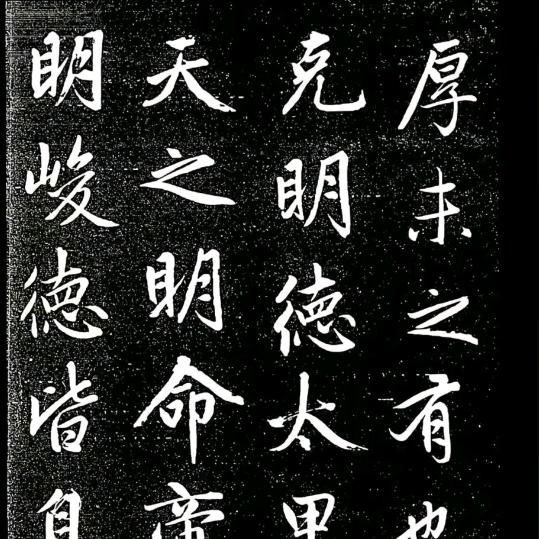 厚未之有也
克明德太甲
天之明命帝
明峻德皆自